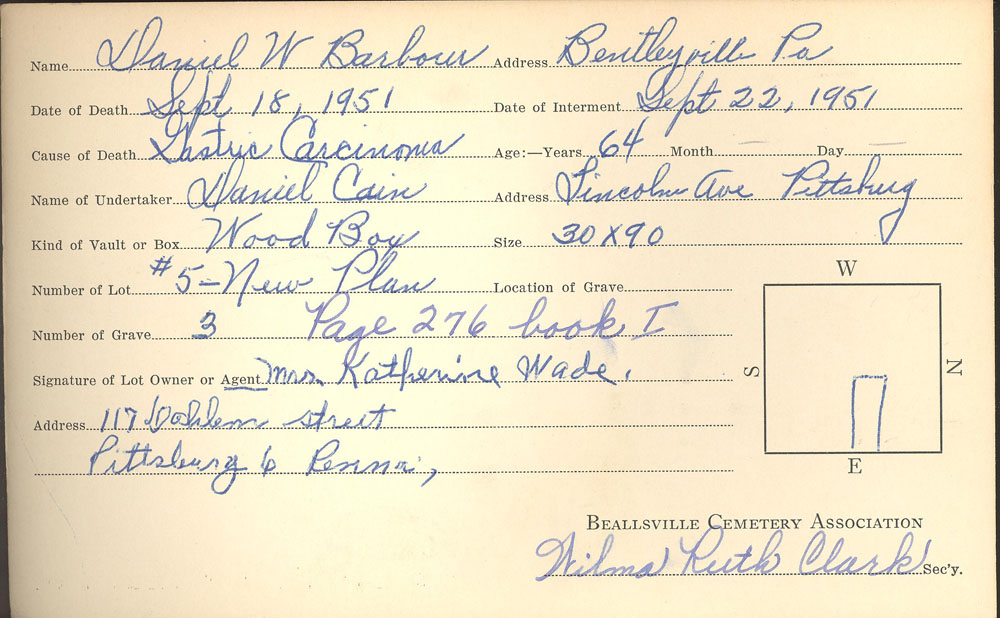 Name Daniel W Barbour Address Bentleyville Pa
Date of Death Sept 18, 1951 Date of Interment Sept 22, 1951
Cause of Death Gastric Carcinoma Age:—Years 64 Month — Day —
Name of Undertaker Daniel Cain Address Lincoln Ave Pittsburg
Kind of Vault or Box Wood Box Size 30 X 90
Number of Lot #5 - New Plan Location of Grave
W
Number of Grave 3 Page 276 book I
S N
Signature of Lot Owner or Agent Mrs. Katherine Wade.
Address 117 street
Pittsburg 6 Penna.,
E
BEALLSVILLE CEMETERY ASSOCIATION
Wilma Ruth Clark Sec'y.